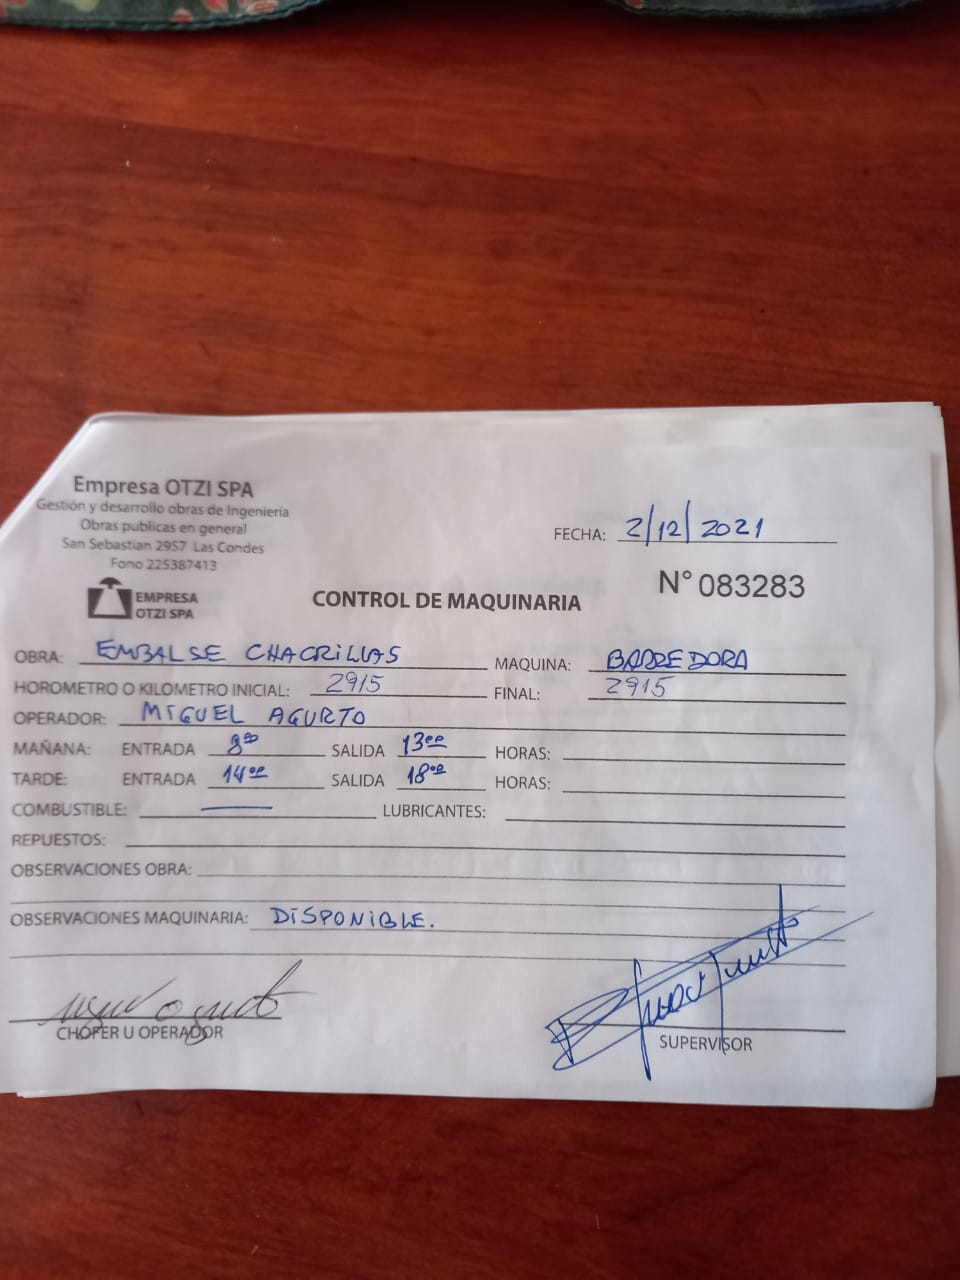 Empresa OTZI SPA
Gestión y desarrollo obras de Ingeniería
Obras publicas en general
San Sebastian 2957 Las Condes
Fono 225387413
EMPRESA
OTZI SPA
FECHA: 2/12/2021
N° 083283
CONTROL DE MAQUINARIA
OBRA: EMBALSE CHACRILLAS MAQUINA: BARREDORA
HOROMETRO O KILOMETRO INICIAL: 2915 FINAL: 2915
OPERADOR: MIGUEL AGURTO
MAÑANA: ENTRADA 8:00 SALIDA 13:00 HORAS:
TARDE: ENTRADA 14:00 SALIDA 18:00 HORAS:
COMBUSTIBLE: — LUBRICANTES:
REPUESTOS:
OBSERVACIONES OBRA:
OBSERVACIONES MAQUINARIA: DISPONIBLE.
CHOFER U OPERADOR
SUPERVISOR